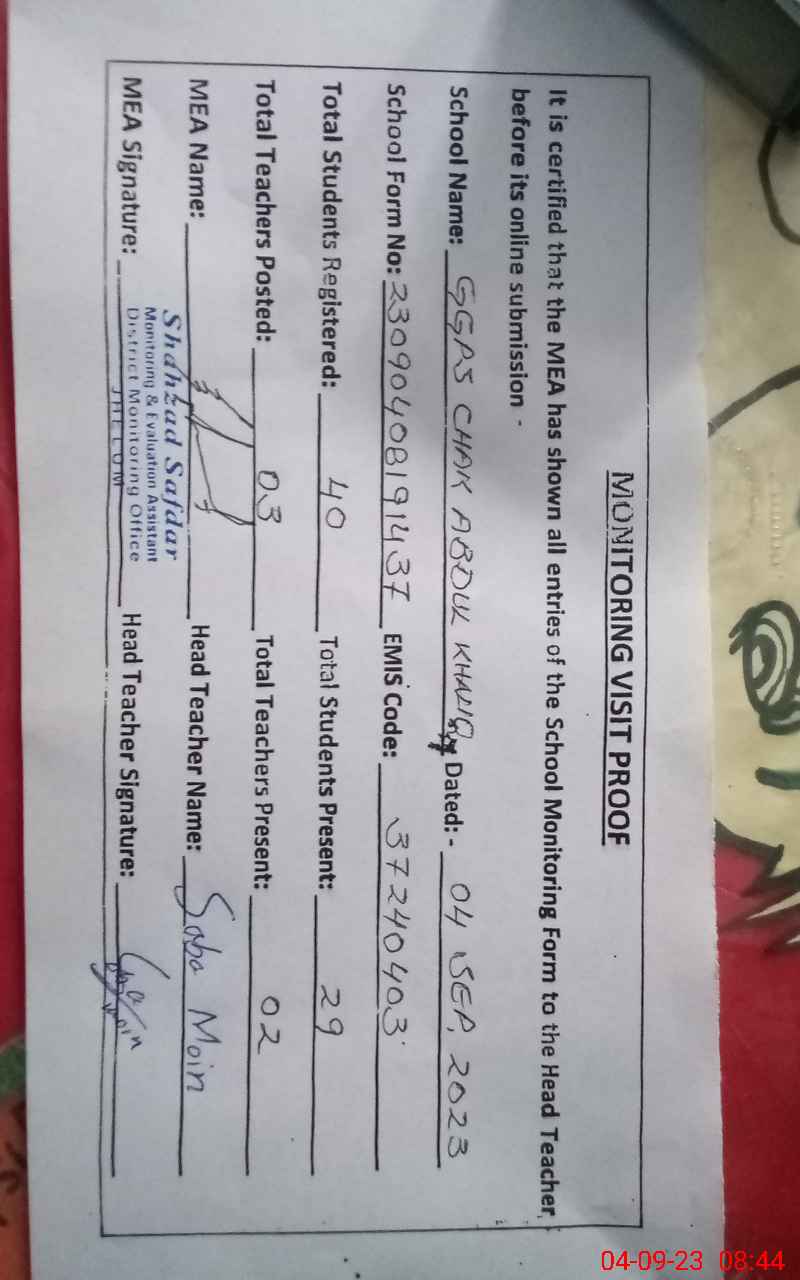 MONITORING VISIT PROOF
It is certified that the MEA has shown all entries of the School Monitoring Form to the Head Teacher
before its online submission -
School Name: GGPS CHAK ABDUL KHALIQ Dated: - 04 SEP, 2023
School Form No: 23090408191437 EMIS Code: 37240403
Total Students Registered: 40 Total Students Present: 29
Total Teachers Posted: 03 Total Teachers Present: 02
MEA Name: Head Teacher Name: Saba Moin
Shahzad Safdar
Monitoring & Evaluation Assistant
District Monitoring Office
JHELUM
MEA Signature: Head Teacher Signature: Saba Moin
04-09-23 08:44